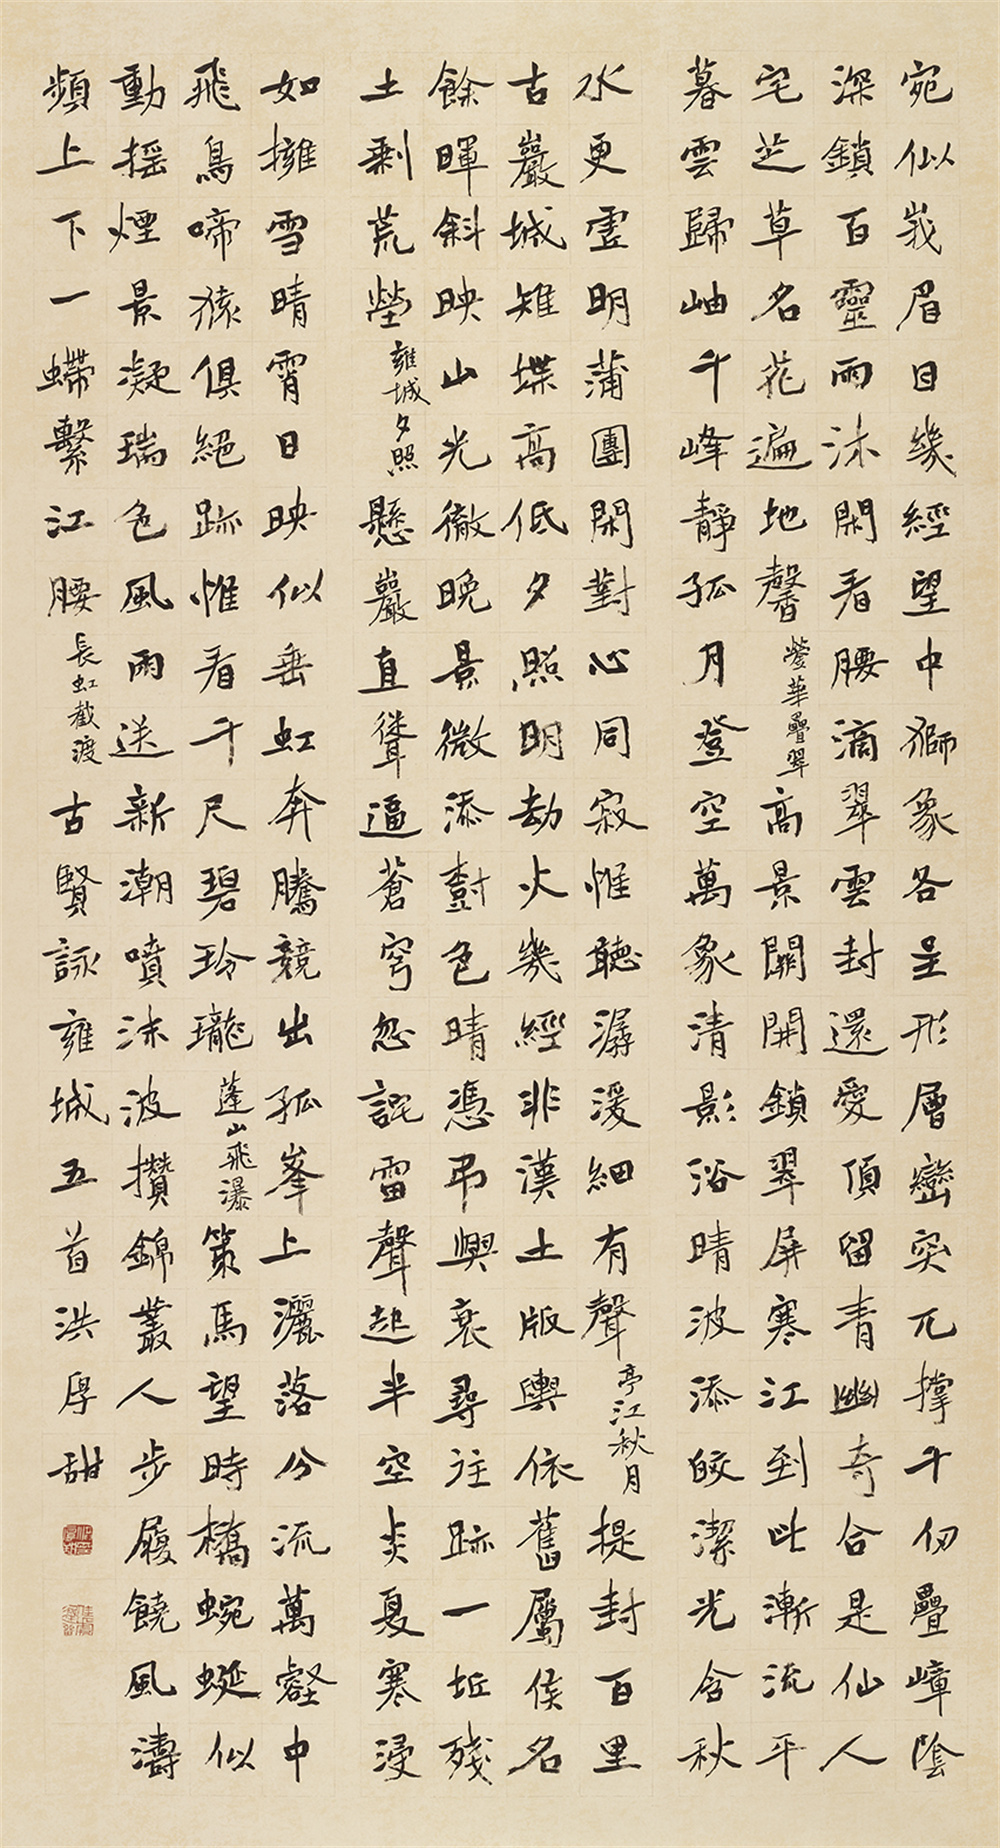 宛似峩眉目幾經望中獅象各呈形層巒突兀撐千仞疊嶂陰
深鎖百靈雨沐閑看腰滴翠雲封還愛頂留青幽奇合是仙人
宅芝草名花遍地馨瑩華疊翠高景關開鎖翠屏寒江到此漸流平
暮雲歸岫千峰靜孤月登空萬象清影浴晴波添皎潔光含秋
水更虛明蒲團閑對心同寂惟聽潺湲細有聲亭江秋月提封百里
古巖城雉堞高低夕照明劫火幾經非漢土版輿依舊屬侯名
餘暉斜映山光徹晚景微添樹色晴憑弔興衰尋往跡一坵殘
土剩荒塋雍城夕照懸巖直聳逼蒼穹忽詫雷聲起半空炎夏寒浸
如擁雪晴霄日映似垂虹奔騰競出孤峯上灑落分流萬壑中
飛鳥啼猿俱絕跡惟看千尺碧玲瓏蓬山飛瀑策馬望時橋蜿蜒似
動搖煙景凝瑞色風雨送新潮噴沫波攢錦叢人步履饒風濤
頻上下一螮繫江腰長虹截渡古賢詠雍城五首洪厚甜